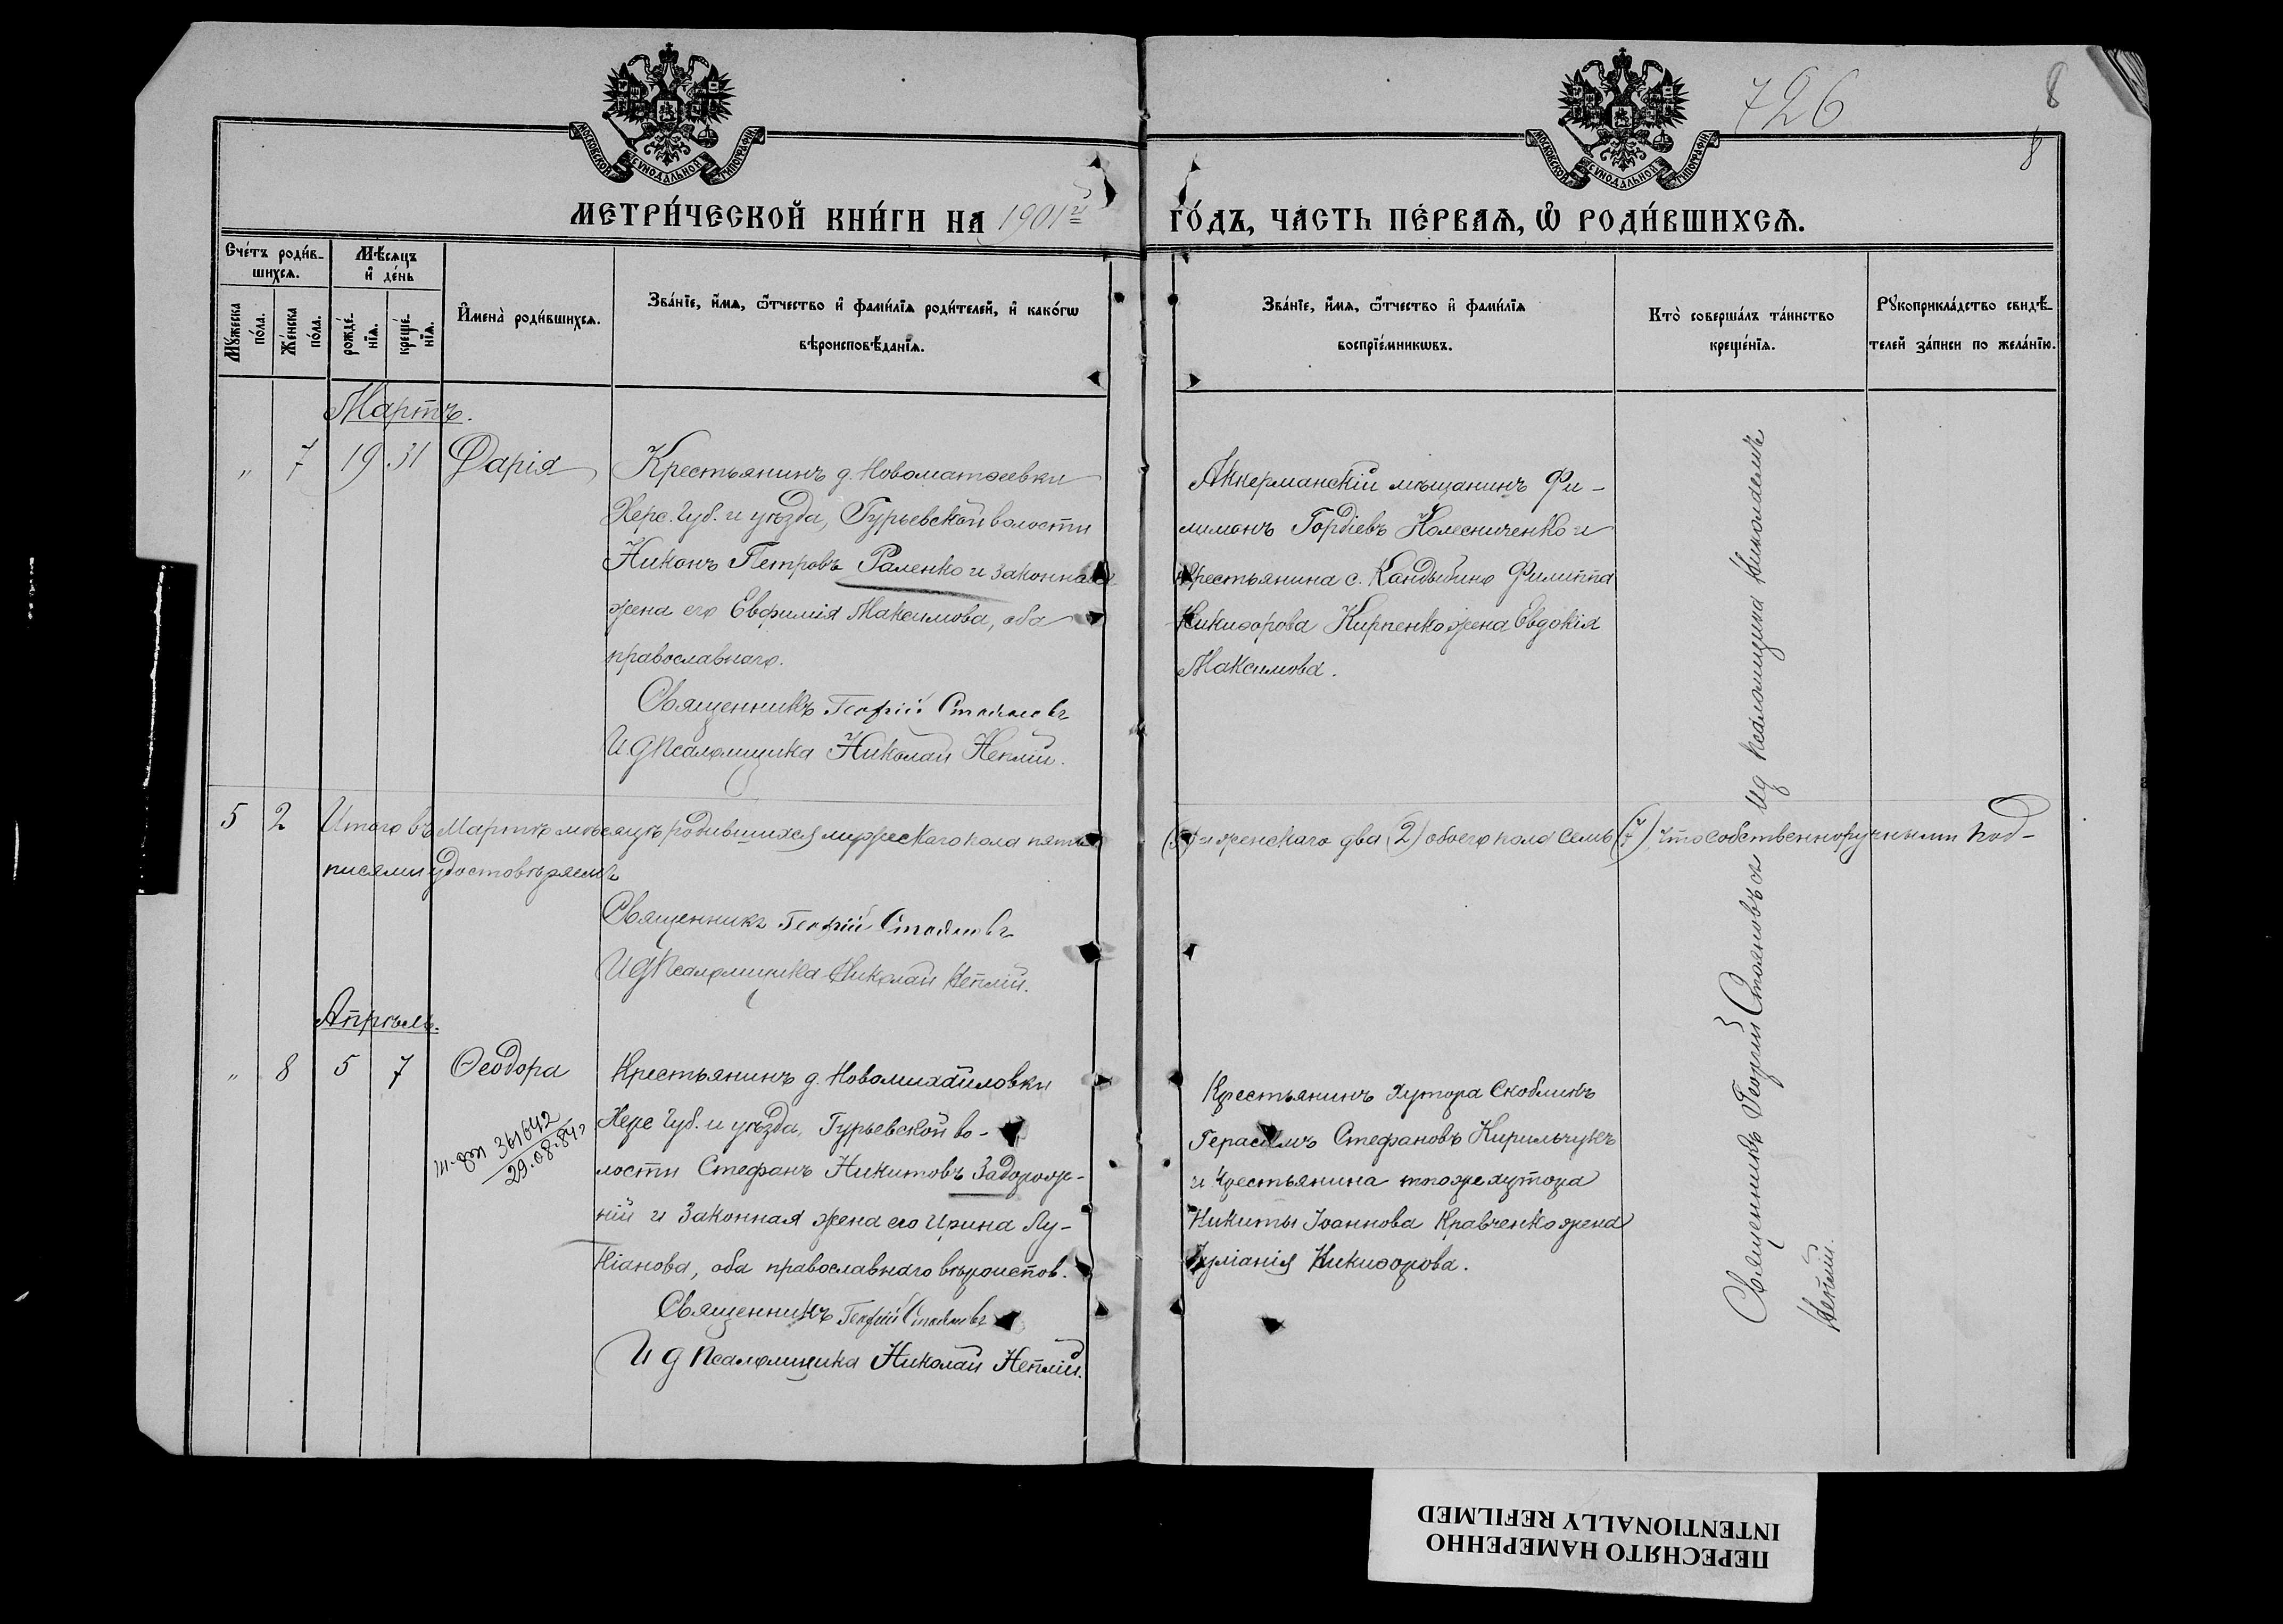 МОСКОВСКОЙ СУНОДАЛЬНОЙ ТИПОГРАФІИ
МОСКОВСКОЙ СУНОДАЛЬНОЙ ТИПОГРАФІИ
726
8
8
МЕТРИ́ЧЕСКОЙ КНИ́ГИ НА 1901й
ГО́ДЪ, ЧА́СТЬ ПЕ́РВАѦ, Ѡ РОДИ́ВШИХСѦ.
Сче́тъ роди́в-
шихсѧ.
Мѣ́сѧцъ
и҆ де́нь
Мꙋ́жеска
по́ла.
Же́нска
по́ла.
рожде́-
нїѧ.
креще́-
нїѧ.
И҆мена̀ роди́вшихсѧ.
Зва́нїе, и҆́мѧ, ѻ҆́тчество и҆ фами́лїѧ роди́телей, и҆ како́гѡ
вѣроисповѣ́данїѧ.
Зва́нїе, и҆́мѧ, ѻ҆́тчество и҆ фами́лїѧ
воспрїе́мникѡвъ.
Кто̀ соверша́лъ та́инство
креще́нїѧ.
Рꙋкоприкла́дство свидѣ́-
телей за́писи по жела́нїю.
Мартъ.
„ 7 19 31 Дарія
Крестьянинъ д. Новоматѳеевки
Херс. Губ. и уѣзда, Гурьевской волости
Никонъ Петровъ Раленко и законная
жена его Евфимія Максимова, оба
православнаго.
Священникъ Георгій Стояновъ
И д Псаломщика Николай Неплій.
Аккерманскій мѣщанинъ Фи-
лимонъ Гордіевъ Колесниченко и
крестьянина с. Кандыбино Филиппа
Никифорова Кирпенко жена Евдокія
Максимова.
5 2 Итого въ Мартѣ мѣсяцѣ родившихся мужескаго пола пять
(5) и женскаго два (2) обоего пола семь (7) что собственноручными под-
писями удостовѣряемъ
Священникъ Георгій Стояновъ
И д Псаломщика Николай Неплій.
Апрѣль.
„ 8 5 7 Ѳеодора
361642
29.08.84г
Крестьянинъ д. Новомихайловки
Херс Губ. и уѣзда, Гурьевской во-
лости Стефанъ Никитовъ Задорож-
ній и законная жена его Ирина Лу-
кіанова, оба православнаго вѣроиспов.
Священникъ Георгій Стояновъ
И д Псаломщика Николай Неплій.
Крестьянинъ хутора Скоблиовъ
Герасимъ Стефановъ Кирильчукъ
и крестьянина того же хутора
Никиты Іоаннова Кравченко жена
Іуліанія Никифорова.
Священникъ Георгій Стояновъ съ И д псаломщика Николаемъ
Неплій.
ПЕРЕСНЯТО НАМЕРЕННО
INTENTIONALLY REFILMED